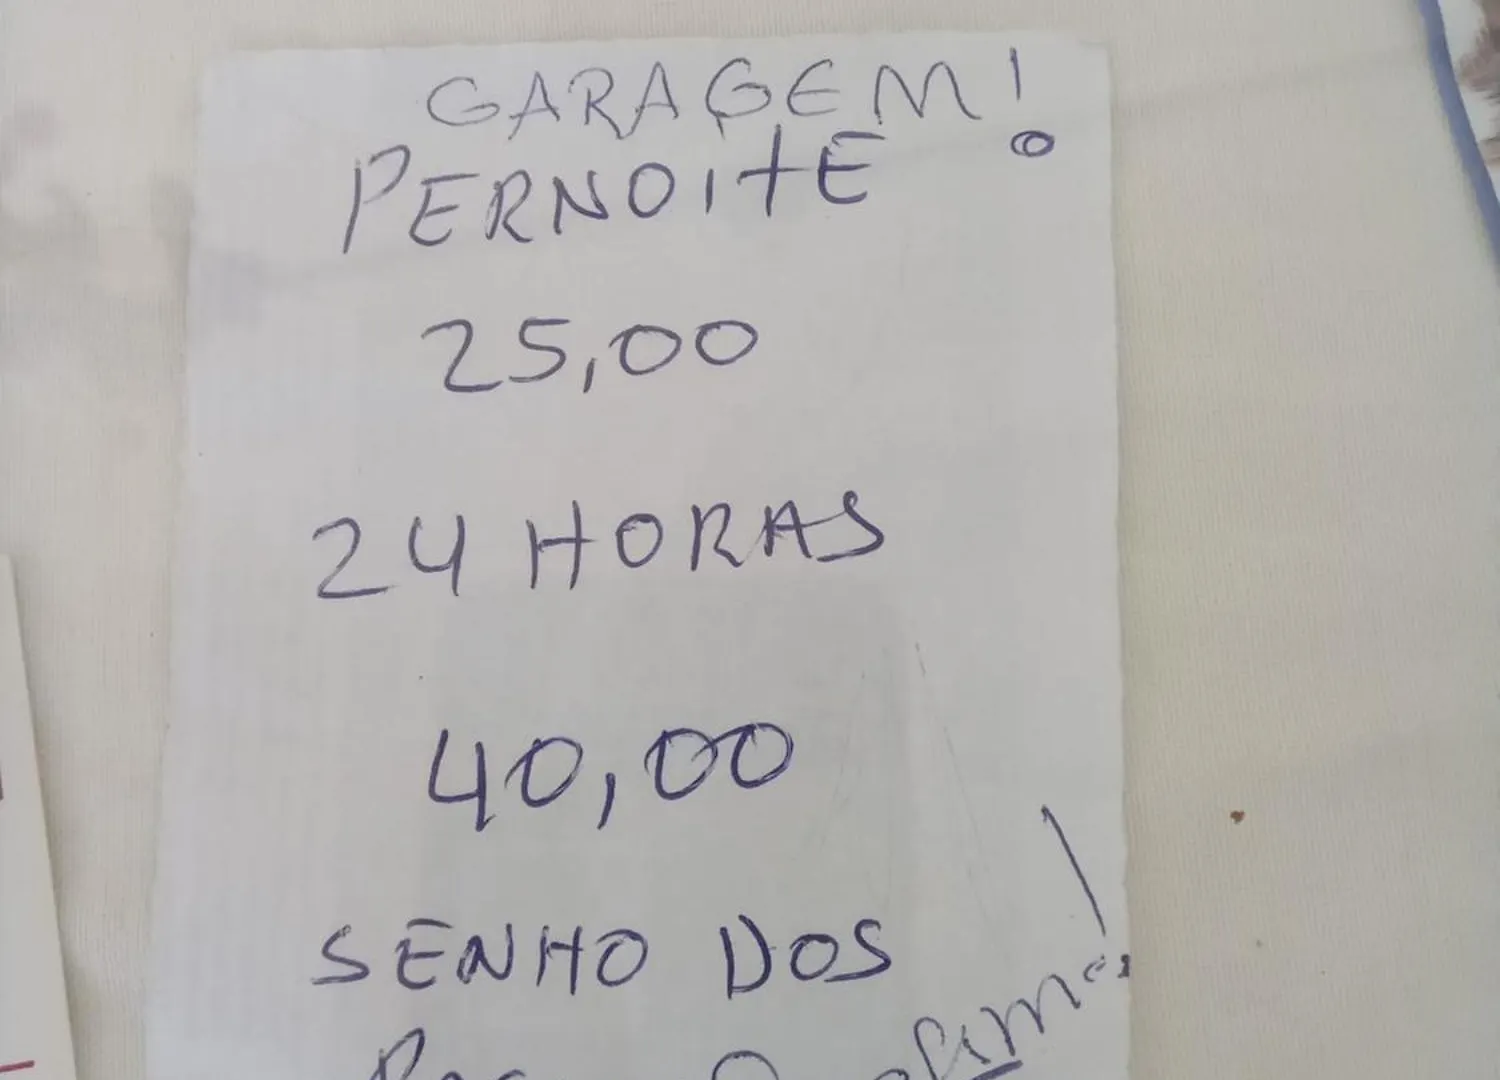 GARAGEM!
PERNOITE
25,00
24 HORAS
40,00
SENHO DOS